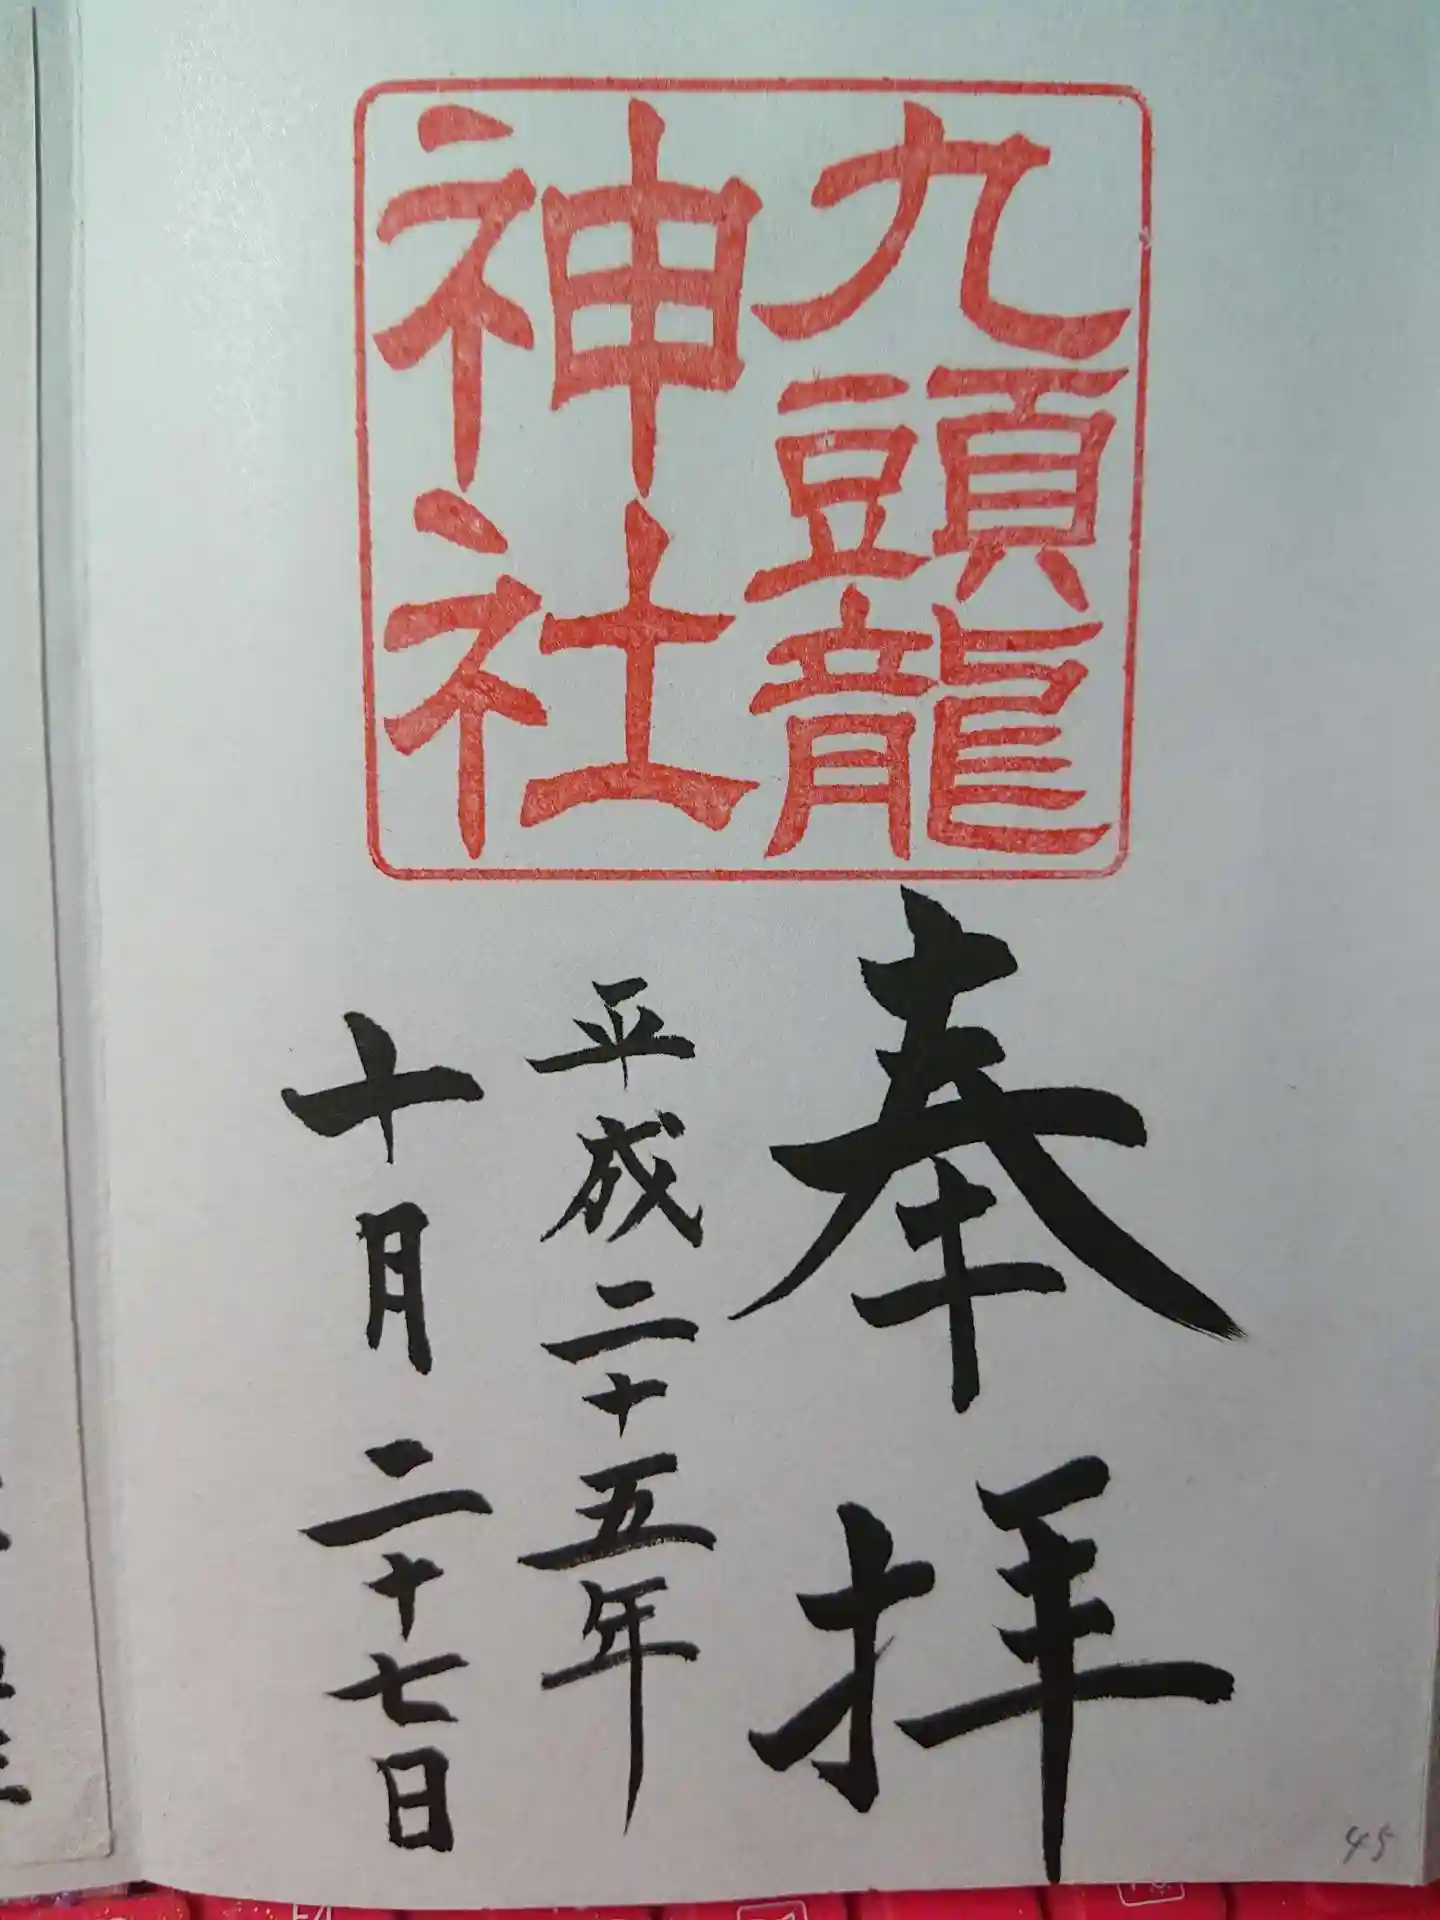 九頭龍
神社
奉拝
平成二十五年
十月二十七日
45
F4